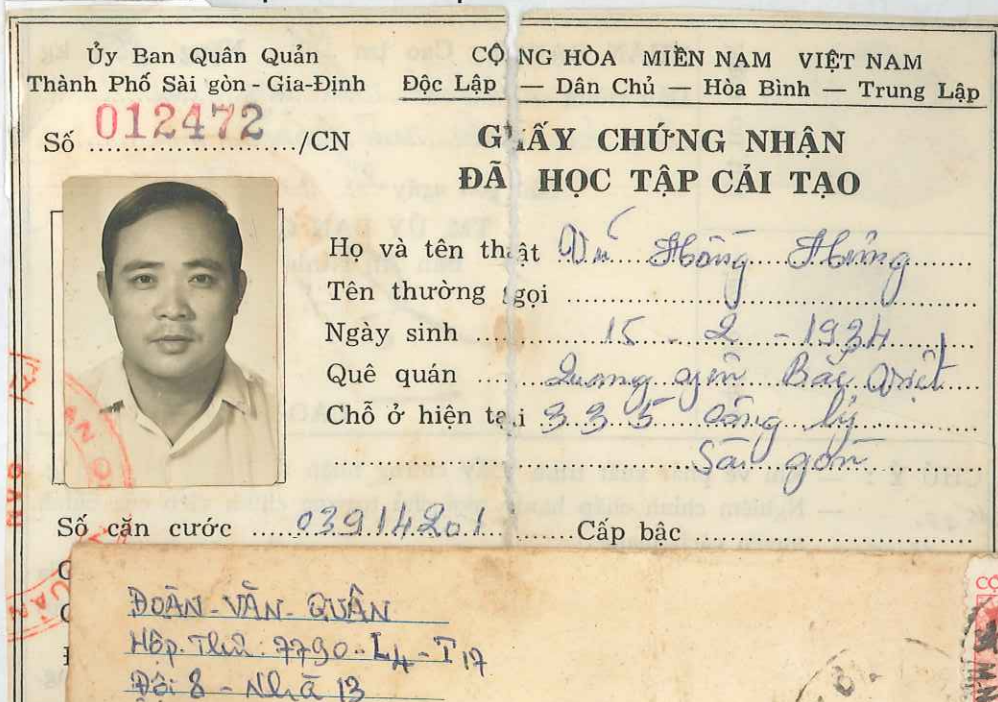 Ủy Ban Quân Quản
Thành Phố Sài gòn - Gia-Định
CỘNG HÒA MIỀN NAM VIỆT NAM
Độc Lập — Dân Chủ — Hòa Bình — Trung Lập
Số 012472 /CN
GIẤY CHỨNG NHẬN
ĐÃ HỌC TẬP CẢI TẠO
Họ và tên thật Vũ Hồng Hưng
Tên thường gọi
Ngày sinh 15 - 2 - 1934
Quê quán Quảng yên Bắc Việt
Chỗ ở hiện tại 335 công lý
Sài gòn
Số căn cước 03914201 Cấp bậc
ĐOÀN-VĂN-QUÂN
Hộp. Thư: 7790-L4-T17
Đội 8 - Nhà 13